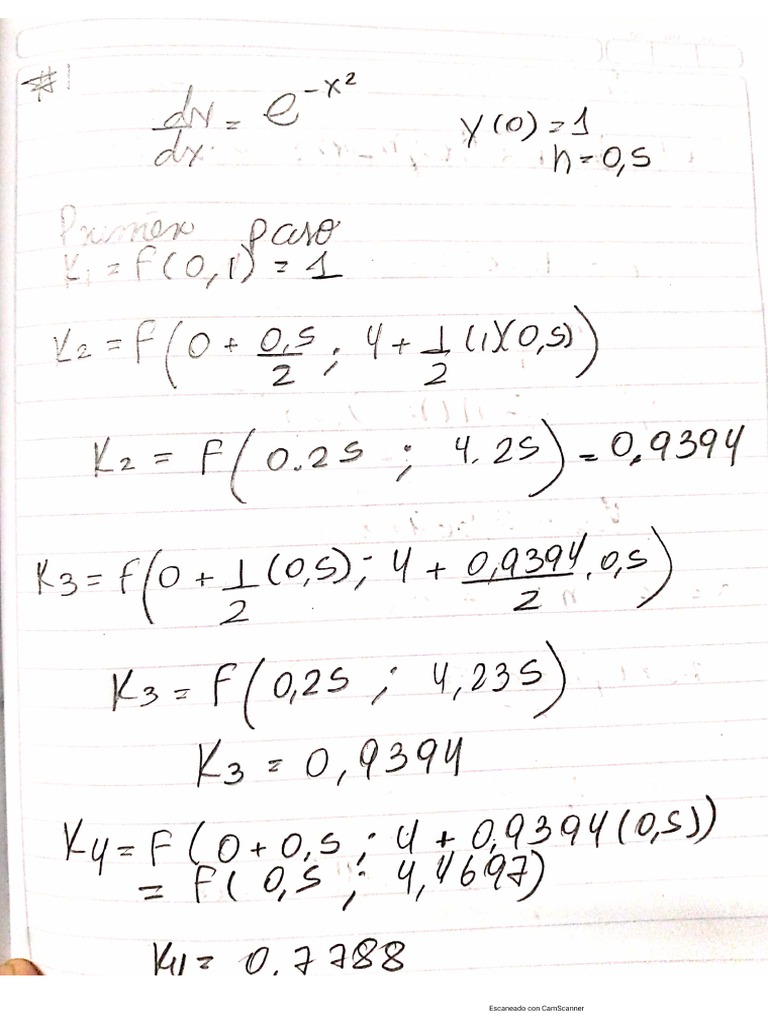 #1
dy/dx = e^-x²
y(0)=1
h=0,5
Primer paso
K1 = f(0,1) = 1
K2 = f(0 + 0,5/2 ; 4 + 1/2 (1)(0,5))
K2 = f(0.25 ; 4.25) = 0,9394
K3 = f(0 + 1/2 (0,5); 4 + 0,9394/2 . 0,5)
K3 = f(0,25 ; 4,235)
K3 = 0,9394
K4 = f(0 + 0,5 ; 4 + 0,9394(0,5))
= f(0,5 ; 4,4697)
K4 = 0.7788
Escaneado con CamScanner